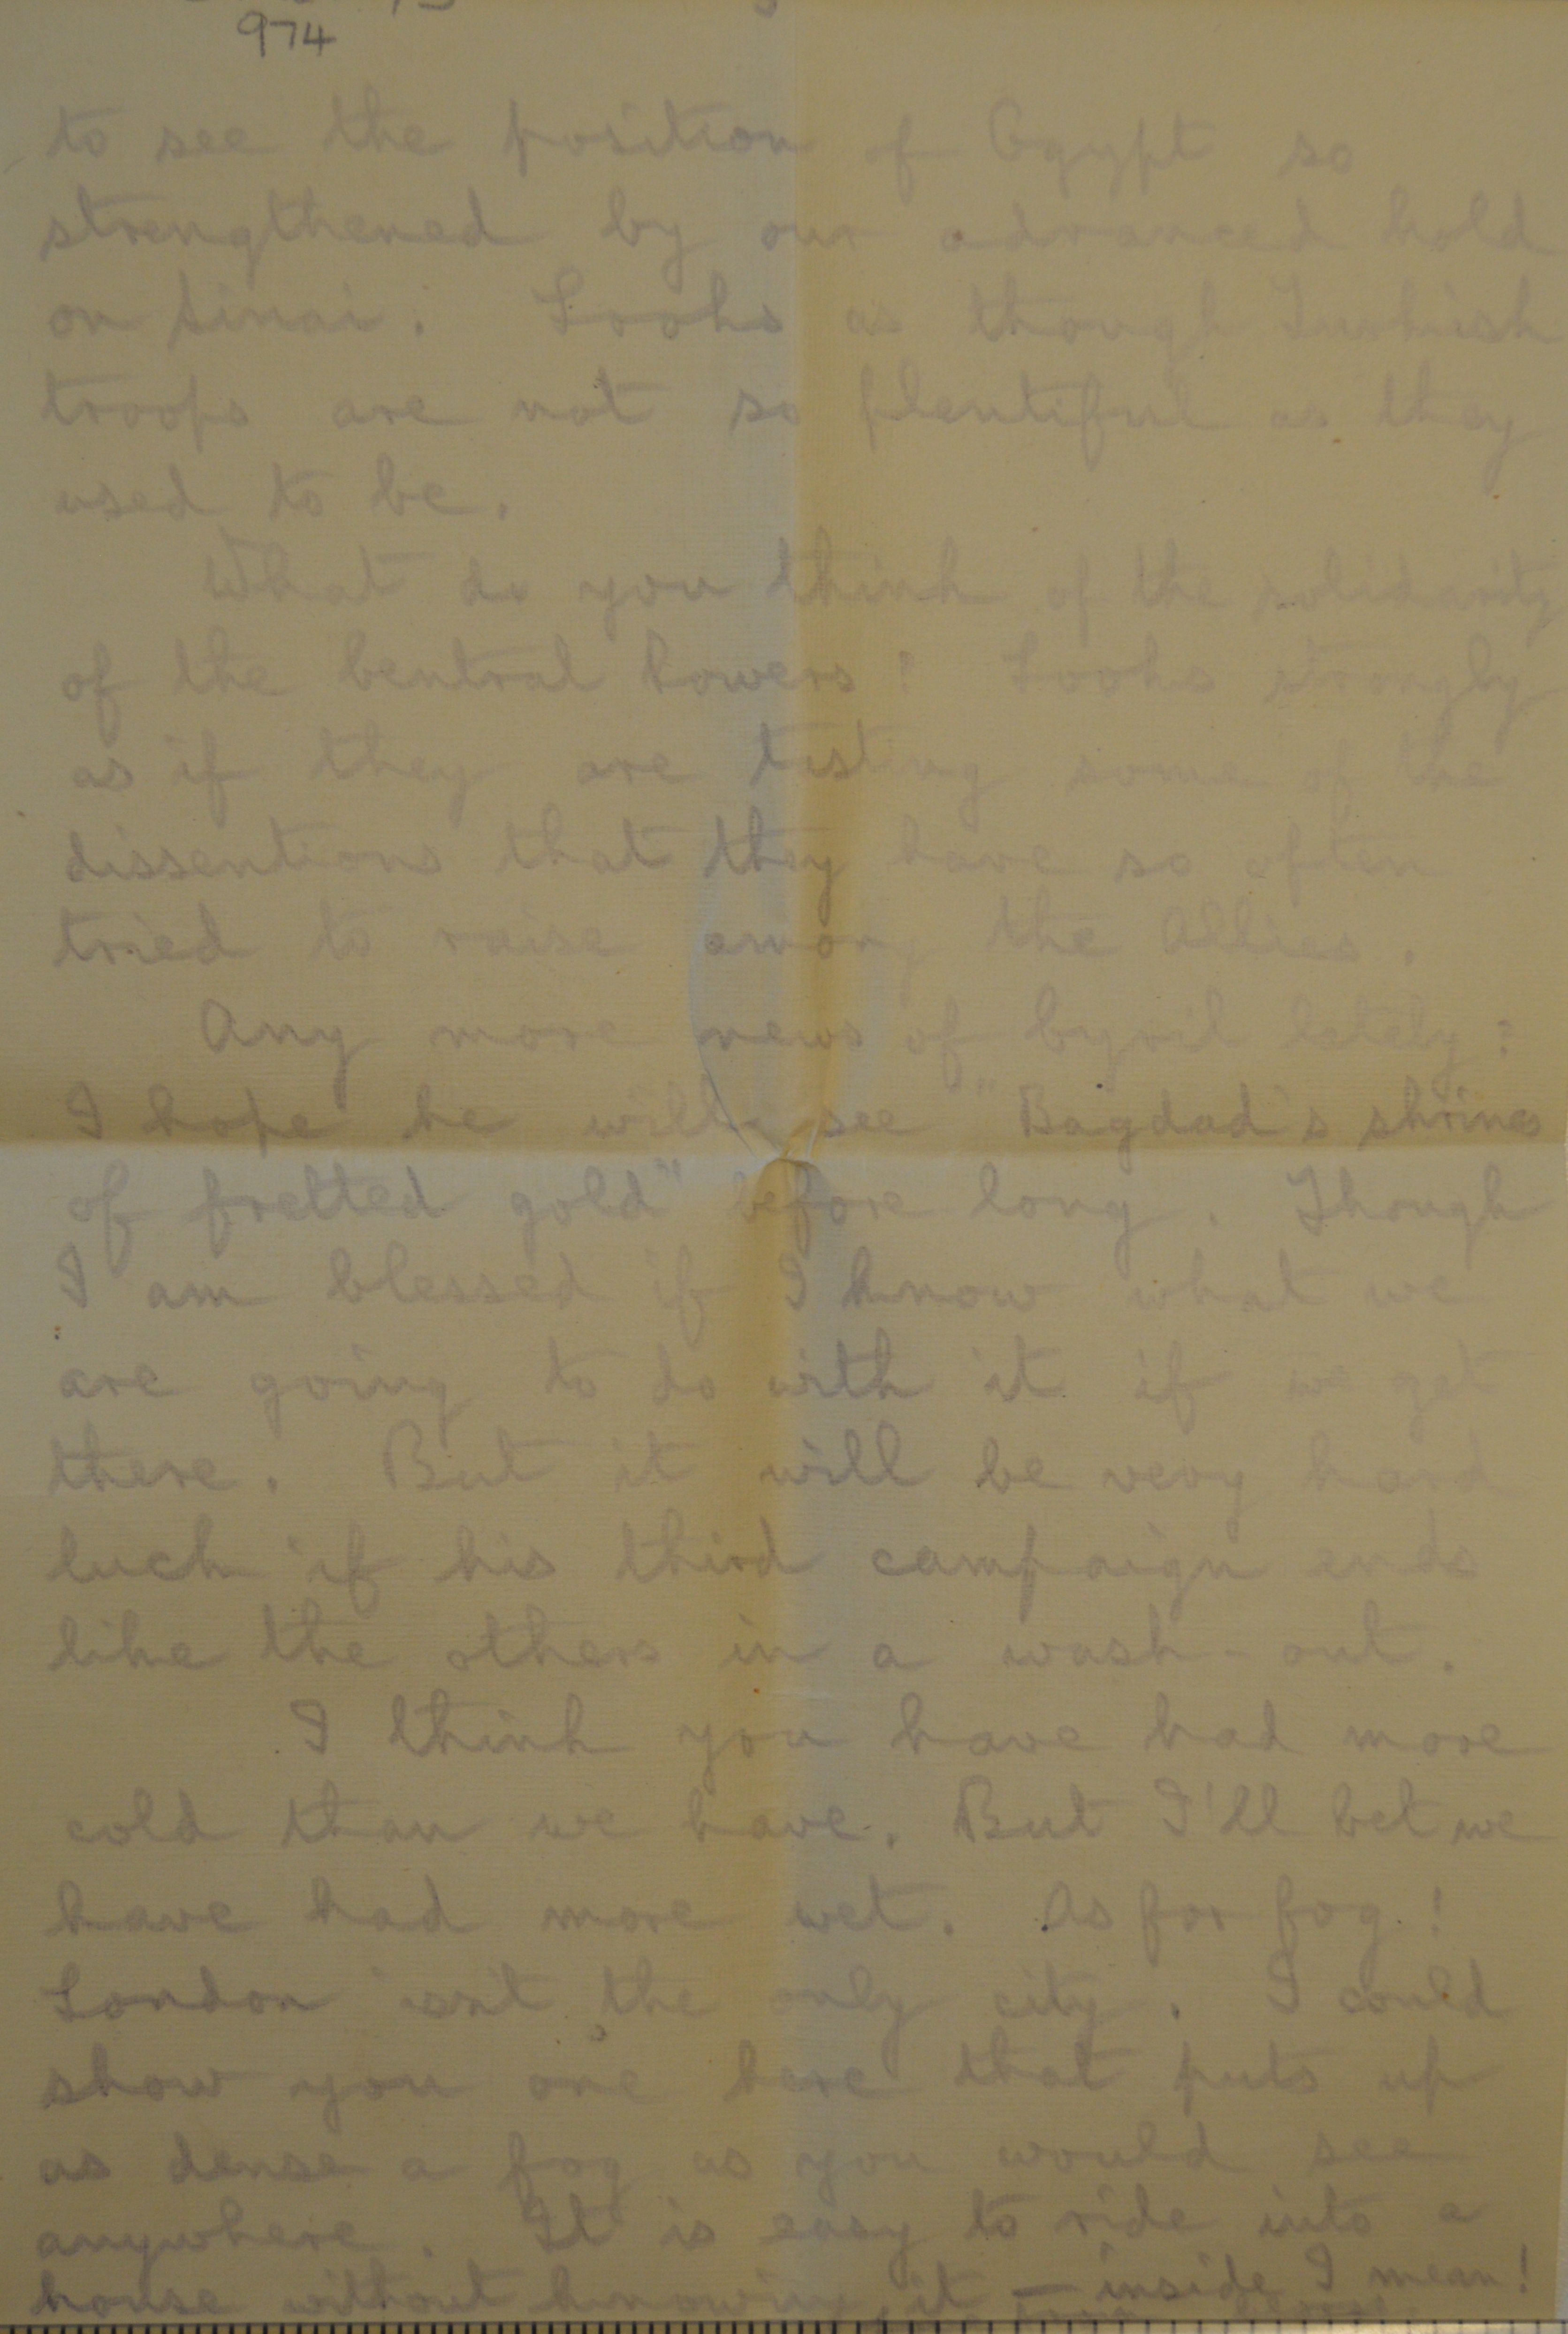 974
to see the position of Egypt so
strengthened by our advanced hold
on Sinai. Looks as though Turkish
troops are not so plentiful as they
used to be.
What do you think of the solidarity
of the Central Powers? Looks strongly
as if they are tasting some of the
dissentions that they have so often
tried to raise among the Allies.
Any more news of Cyril lately?
I hope he will see "Bagdad's shrines
of fretted gold" before long. Though
I am blessed if I know what we
are going to do with it if we get
there. But it will be very hard
luck if his third campaign ends
like the others in a wash-out.
I think you have had more
cold than we have. But I'll bet we
have had more wet. As for fog!
London isn't the only city. I could
show you one here that puts up
as dense a fog as you would see
anywhere. It is easy to ride into a
house without knowing it — inside I mean!